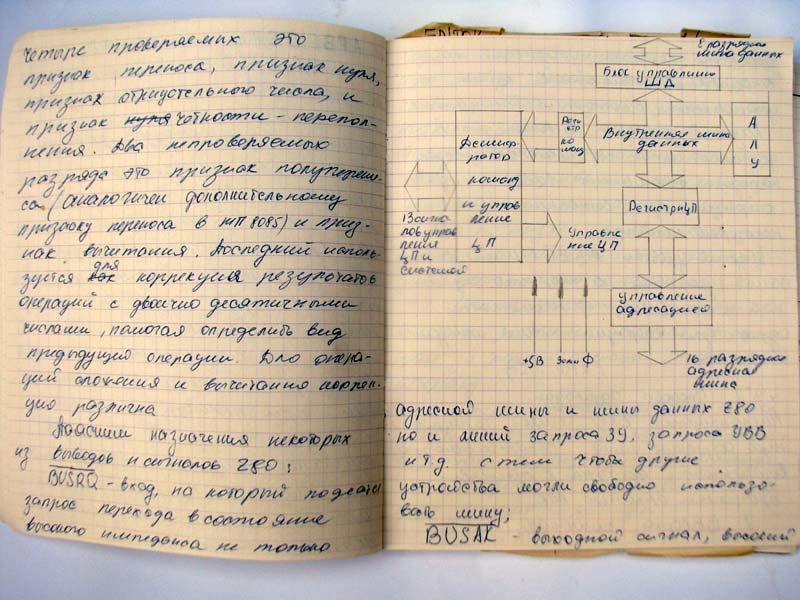 четыре проверяемых это
признак переноса, признак нуля,
признак отрицательного числа, и
признак нуля четности - перепол-
нения. Два непроверяемых
разряда это признак полуперено-
са (аналогичен дополнительному
признаку переноса в МП 8085) и приз-
нак вычитания. Последний исполь-
зуется для коррекции результатов
операций с двоично десятичными
числами, помогая определить вид
предыдущей операции. Для опера-
ций сложения и вычитания коррек-
ция различна
Поясним назначения некоторых
из выводов и сигналов Z80:
BUSRQ - вход, на который подается
запрос перехода в состояние
высокого импеданса не только
8 разрядная
шина данных
Блок управления
ШД
Регистр
команд
Внутренняя шина
данных
А
Л
У
Дешиф-
ратор
команд
и управ
ление
ЦП
13 сигна
лов управ
ления
ЦП и
системой
Управле
ние ЦП
Регистры ЦП
Управление
адресацией
+5В Земля Ф
16 разрядная
адресная
шина
адресной шины и шины данных Z80
но и линий запроса ЗУ, запроса УВВ
и т.д. с тем чтобы другие
устройства могли свободно использо-
вать шину;
BUSAK - выходной сигнал, высокий